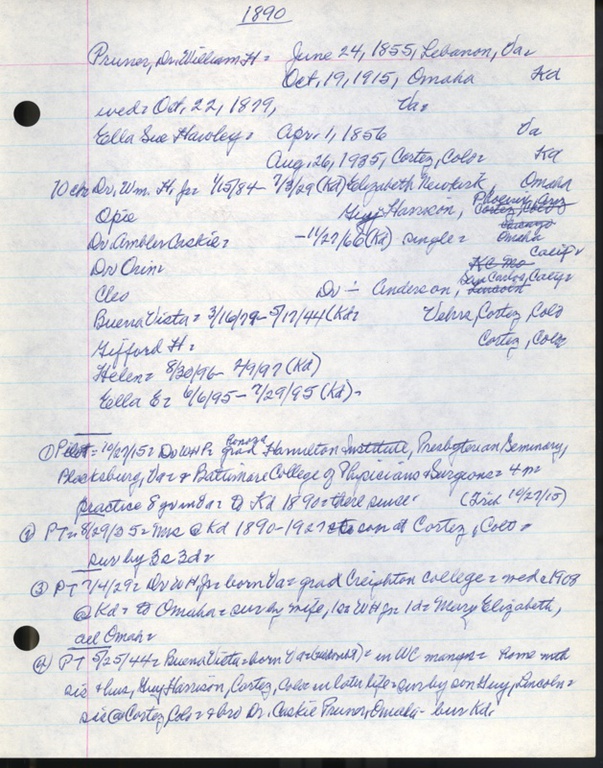 1890
Pruner, Dr. William H = June 24, 1855, Lebanon, Va.
Oct. 19, 1915, Omaha Kd
wed = Oct. 22, 1879, Va =
Ella Sue Hawley = Apr. 1, 1856 Va
Aug. 26, 1935, Cortez, Colo = Kd
10 ch Dr. Wm. H. Jr = 1/15/84 - 7/3/29 (Kd) Elizabeth Newkirk, Omaha
Opie Guy Harrison, Phoenix, Ariz Cortez, Colo
Dr. Ambler Caskie = - 11/27/66 (Kd) single = Omaha
Dr Orin = Calif =
KC Mo
Cleo Dr — Anderson, San Carlos, Calif = Lincoln
Buena Vista = 3/16/79 - 5/17/44 (Kd = Cortez, Colo
Gifford H = Cortez, Colo
Helen = 8/30/96 - 2/9/97 (Kd)
Ella E = 6/6/95 - 7/29/95 (Kd) -
① Pilot = 10/27/15 = Dr WHP = grad Hamilton Institute, Presbyterian Seminary,
Blacksburg, Va = & Baltimore College of Physicians & Surgeons = 4 m =
practice 8 yr in Va = to Kd 1890 = there since = (Frid 10/22/15)
② PT = 8/29/35 = Mrs @ Kd 1890-1927 son at Cortez, Colo =
sur by 3s 3d =
③ PT 7/4/29 = Dr WH Jr = born Va = grad Creighton College = wed 1908
@ Kd = to Omaha = sur by wife, 1s WH Jr = 1d = Mary Elizabeth,
all Omah =
④ PT 5/25/44 = Buena Vista = born Va = in WC = home with
sis & hus, Guy Harrison, Cortez, Colo = in later life = sur by son Guy, Lincoln =
sis @ Cortez Colo = & bro Dr. Caskie Pruner, Omaha - bur Kd.